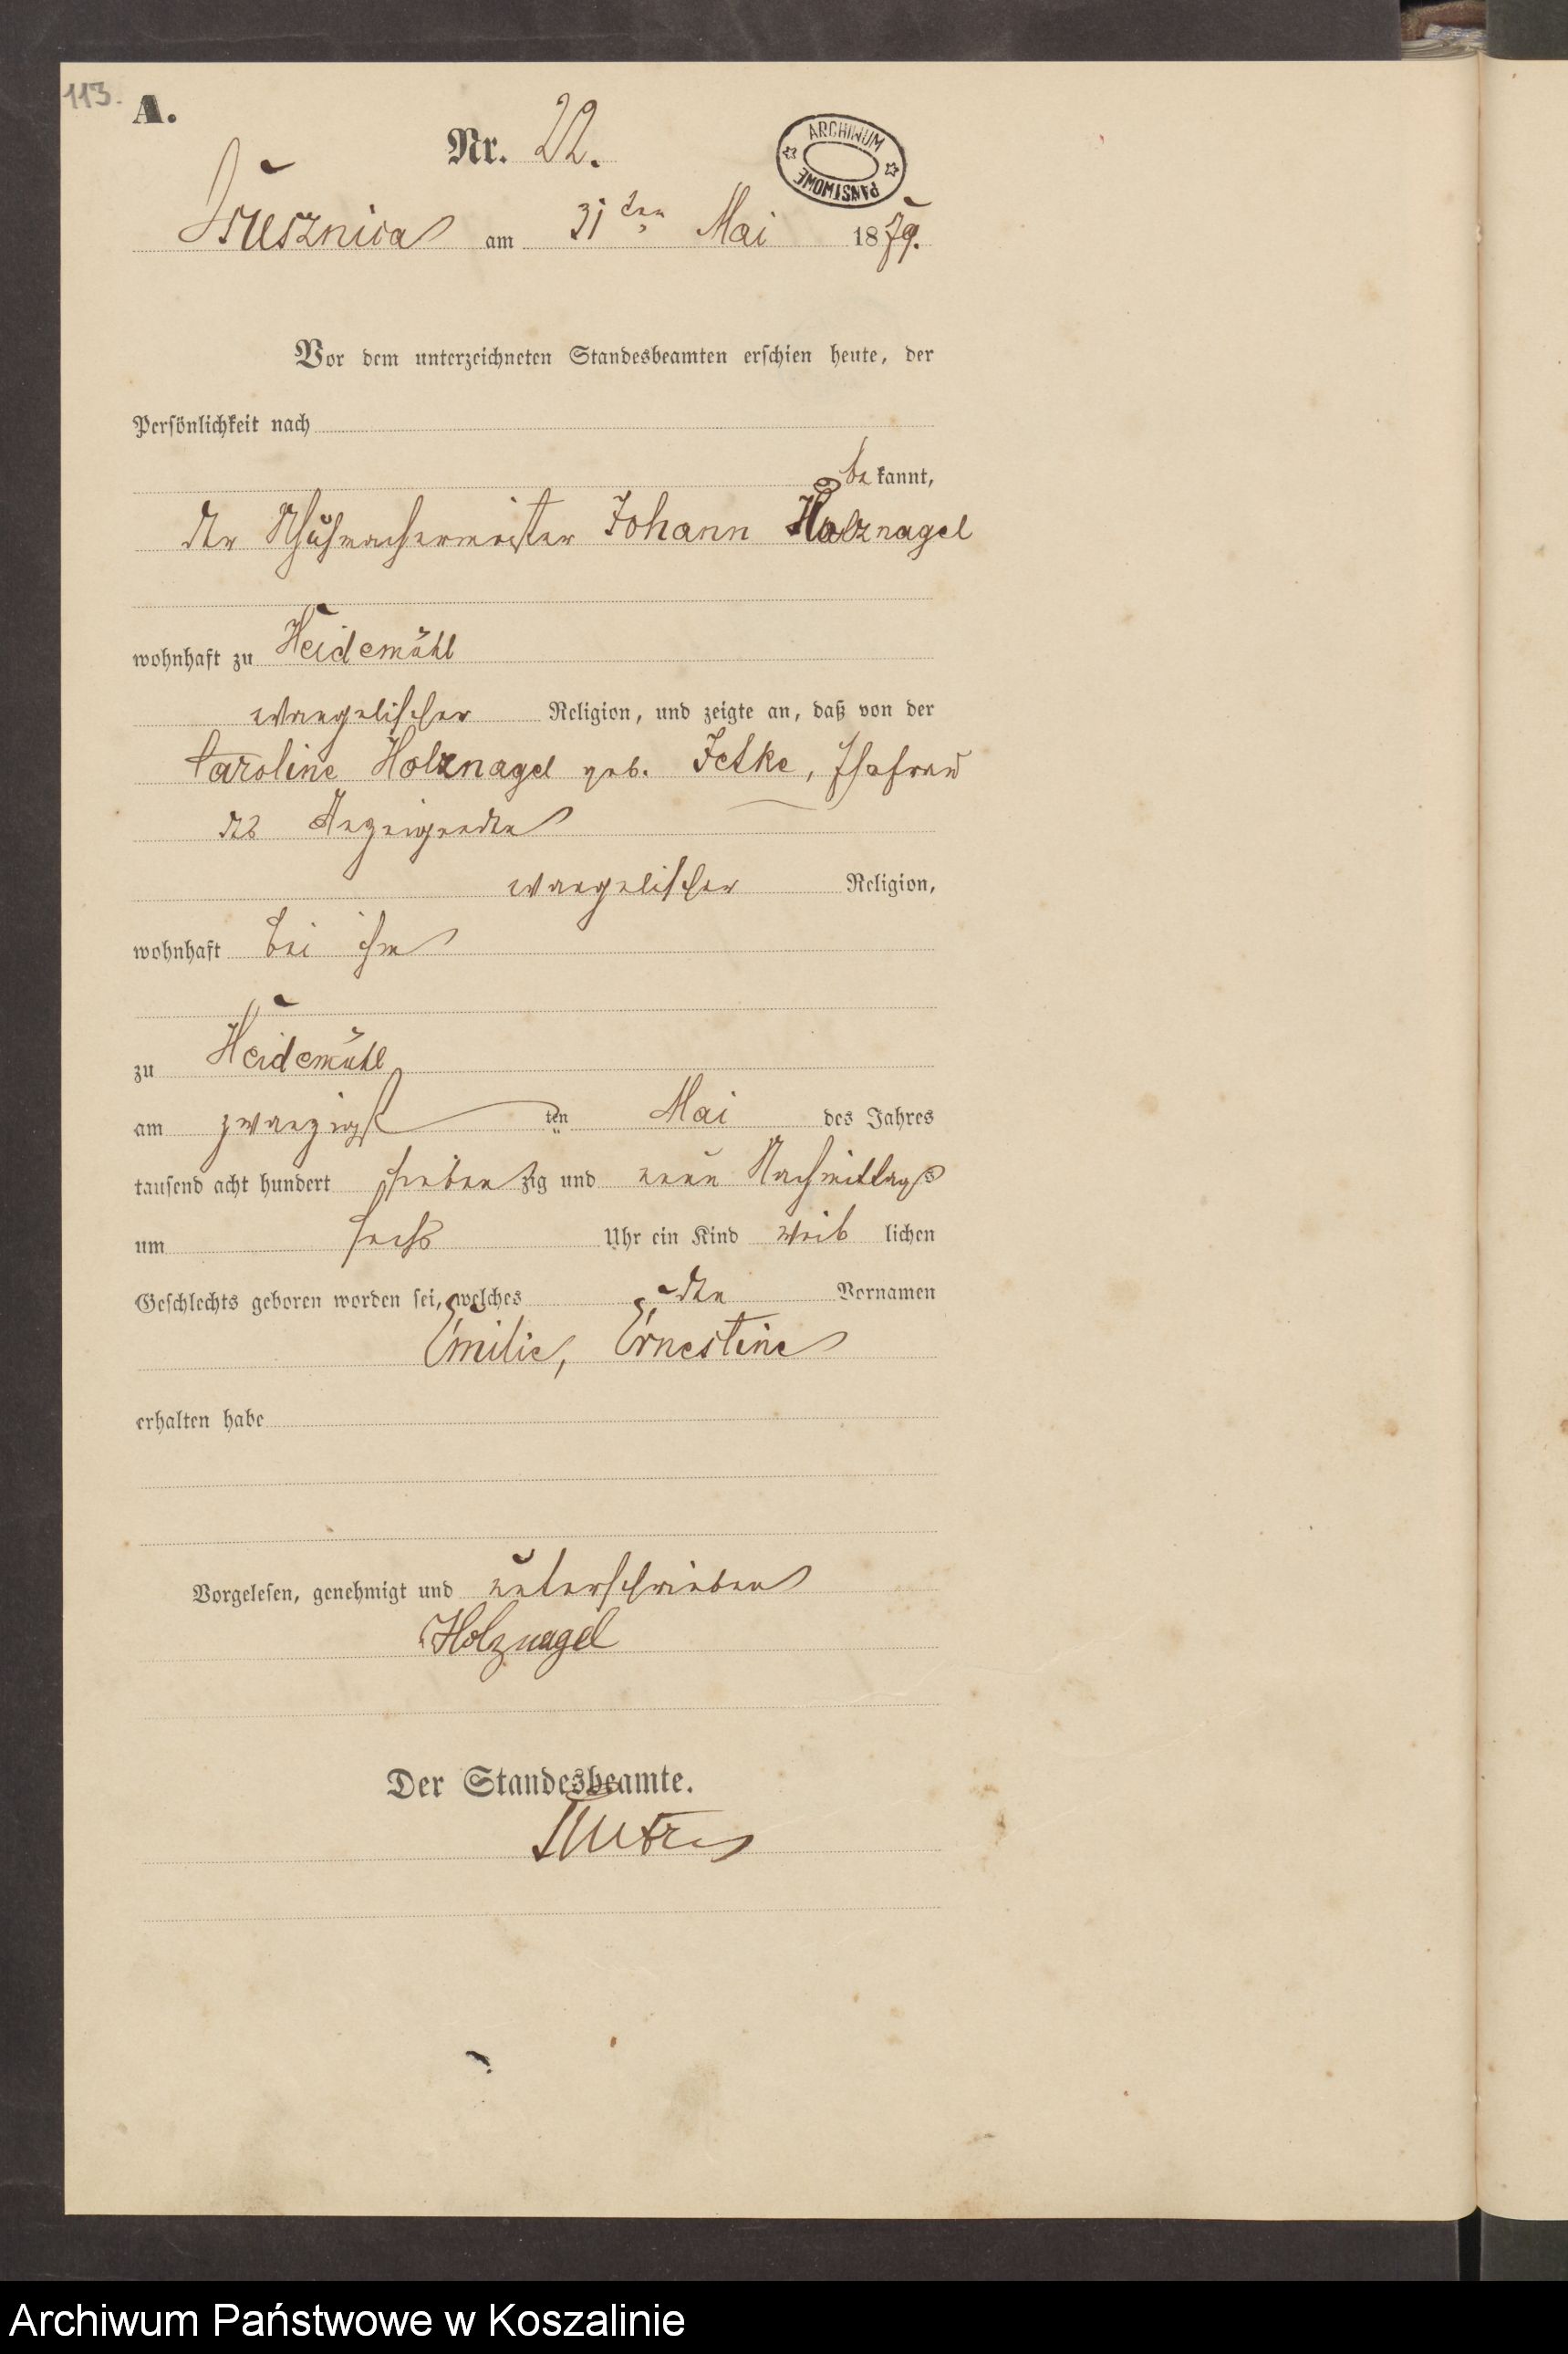 113.
A.
Nr. 22.
ARCHIWUM PAŃSTWOWE
am 31ten Mai 1879.
Vor dem unterzeichneten Standesbeamten erschien heute, der
Persönlichkeit nach
be kannt,
der Schuhmachermeister Johann Holznagel
wohnhaft zu Heidemühl
evangelischer Religion, und zeigte an, daß von der
Caroline Holznagel geb. Jetke, Ehefrau
des Anzeigenden
evangelischer Religion,
wohnhaft bei ihm
zu Heidemühl
am zwanzigst ten Mai des Jahres
tausend acht hundert sieben zig und neun Nachmittags
um sechs Uhr ein Kind weib lichen
Geschlechts geboren worden sei, welches den Vornamen
Emilie, Ernestine
erhalten habe
Vorgelesen, genehmigt und unterschrieben
Holznagel
Der Standesbeamte.
Archiwum Państwowe w Koszalinie